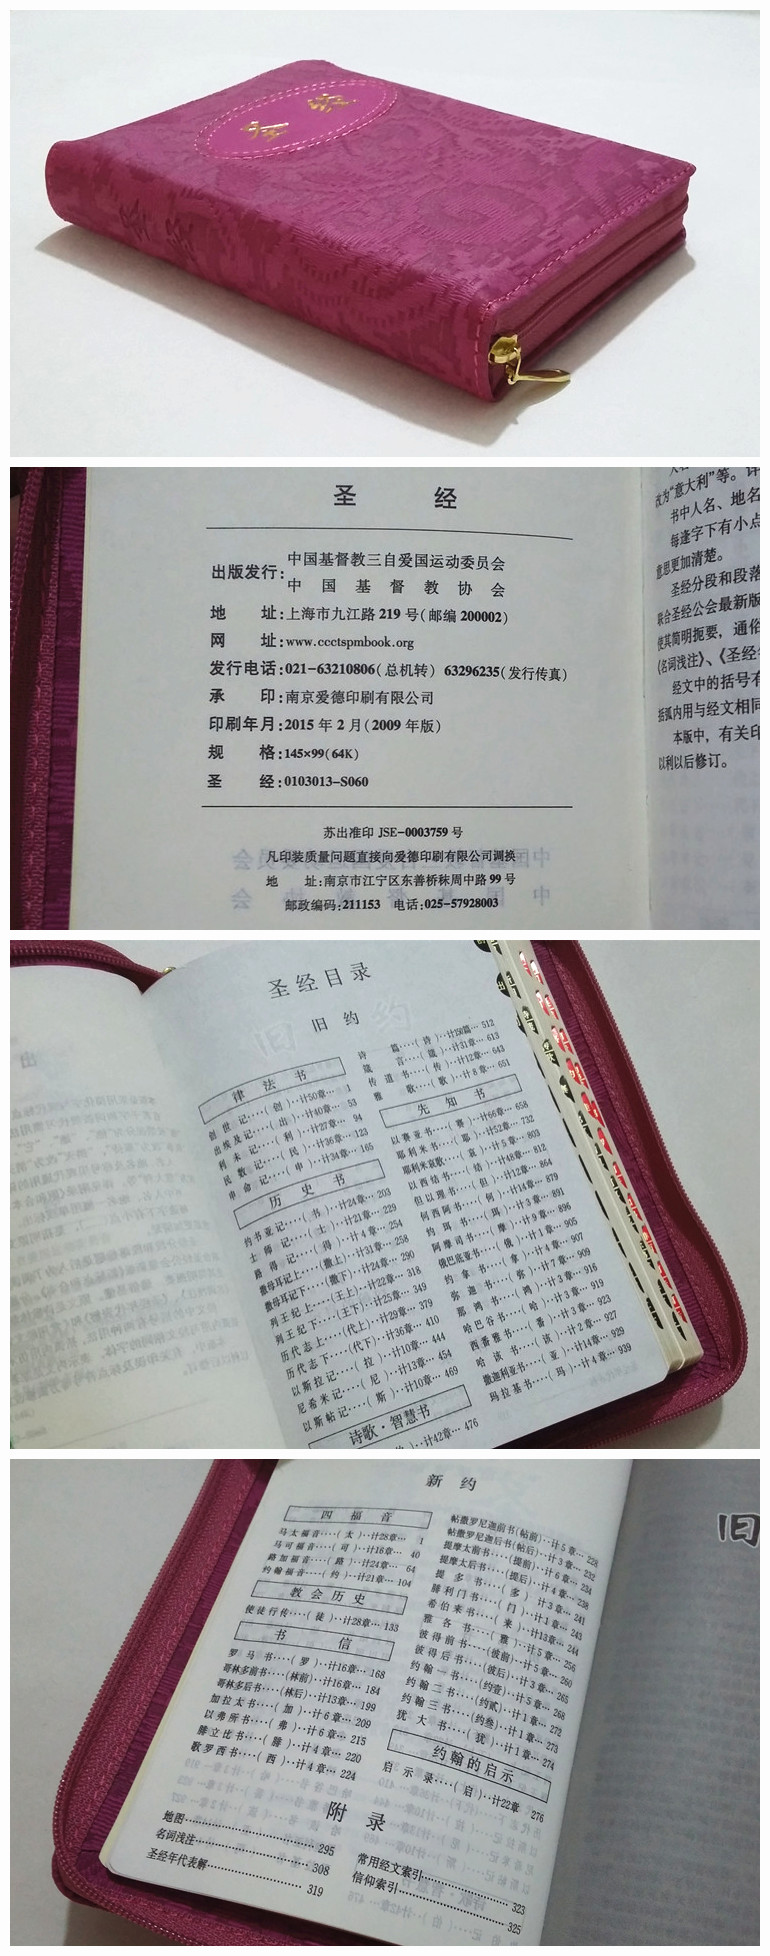 圣 经
圣 经
出版发行:中国基督教三自爱国运动委员会
中国基督教协会
地 址:上海市九江路 219 号(邮编 200002)
网 址:www.ccctspmbook.org
发行电话:021-63210806(总机转) 63296235(发行传真)
承 印:南京爱德印刷有限公司
印刷年月:2015 年 2 月(2009 年版)
规 格:145×99(64K)
圣 经:0103013-S060
苏出准印 JSE-0003759 号
凡印装质量问题直接向爱德印刷有限公司调换
地 址:南京市江宁区东善桥秣周中路 99 号
邮政编码:211153 电话:025-57928003
改为“意大利”等。
书中人名、地名
每逢字下有小点
意思更加清楚。
圣经分段和段落
联合圣经公会最新版
使其简明扼要，通俗
《名词浅注》、《圣经
经文中的括号有
括弧内用与经文相同
本版中，有关印
以利以后修订。
圣经目录
旧 约
律 法 书
创 世 记····( 创 )··计50章··· 1
出埃及记····( 出 )··计40章··· 53
利 未 记····( 利 )··计27章··· 94
民 数 记····( 民 )··计36章··· 123
申 命 记····( 申 )··计34章··· 165
历 史 书
约书亚记····( 书 )··计24章··· 203
士 师 记····( 士 )··计21章··· 229
路 得 记····( 得 )··计 4 章··· 254
撒母耳记上··(撒上)··计31章··· 258
撒母耳记下··(撒下)··计24章··· 290
列王纪上····(王上)··计22章··· 318
列王纪下····(王下)··计25章··· 349
历代志上····(代上)··计29章··· 379
历代志下····(代下)··计36章··· 410
以斯拉记····( 拉 )··计10章··· 444
尼希米记····( 尼 )··计13章··· 454
以斯帖记····( 斯 )··计10章··· 469
诗歌·智慧书
计42章··· 476
诗 篇····( 诗 )··计150篇··· 512
箴 言····( 箴 )··计31章··· 613
传 道 书····( 传 )··计12章··· 643
雅 歌····( 歌 )··计 8 章··· 651
先 知 书
以赛亚书····( 赛 )··计66章··· 658
耶利米书····( 耶 )··计52章··· 732
耶利米哀歌··( 哀 )··计 5 章··· 803
以西结书····( 结 )··计48章··· 812
但以理书····( 但 )··计12章··· 864
何西阿书····( 何 )··计14章··· 879
约 珥 书····( 珥 )··计 3 章··· 891
阿摩司书····( 摩 )··计 9 章··· 896
俄巴底亚书··( 俄 )··计 1 章··· 905
约 拿 书····( 拿 )··计 4 章··· 907
弥 迦 书····( 弥 )··计 7 章··· 909
那 鸿 书····( 鸿 )··计 3 章··· 916
哈巴谷书····( 哈 )··计 3 章··· 919
西番雅书····( 番 )··计 3 章··· 923
哈 该 书····( 该 )··计 2 章··· 927
撒迦利亚书··( 亚 )··计14章··· 929
玛拉基书····( 玛 )··计 4 章··· 939
新 约
四 福 音
马太福音····( 太 )··计28章··· 1
马可福音····( 可 )··计16章··· 40
路加福音····( 路 )··计24章··· 64
约翰福音····( 约 )··计21章··· 104
教 会 历 史
使徒行传····( 徒 )··计28章··· 133
书 信
罗 马 书····( 罗 )··计16章··· 168
哥林多前书··(林前)··计16章··· 184
哥林多后书··(林后)··计13章··· 199
加拉太书····( 加 )··计 6 章··· 209
以弗所书····( 弗 )··计 6 章··· 215
腓立比书····( 腓 )··计 4 章··· 220
歌罗西书····( 西 )··计 4 章··· 224
帖撒罗尼迦前书(帖前)··计 5 章··· 228
帖撒罗尼迦后书(帖后)··计 3 章··· 232
提摩太前书··(提前)··计 6 章··· 234
提摩太后书··(提后)··计 4 章··· 238
提 多 书····( 多 ) 计 3 章··· 241
腓利门书····( 门 )··计 1 章··· 243
希伯来书····( 来 )··计13章··· 244
雅 各 书····( 雅 )··计 5 章··· 256
彼得前书····(彼前)··计 5 章··· 260
彼得后书····(彼后)··计 3 章··· 265
约翰一书····(约壹)··计 5 章··· 268
约翰二书····(约贰)··计 1 章··· 272
约翰三书····(约叁)··计 1 章··· 273
犹 大 书····( 犹 )··计 1 章··· 274
约翰的启示
启 示 录····( 启 )··计22章 276
附 录
地图······ 295
名词浅注······ 308
圣经年代表解······ 319
常用经文索引······ 323
信仰索引······ 325
旧